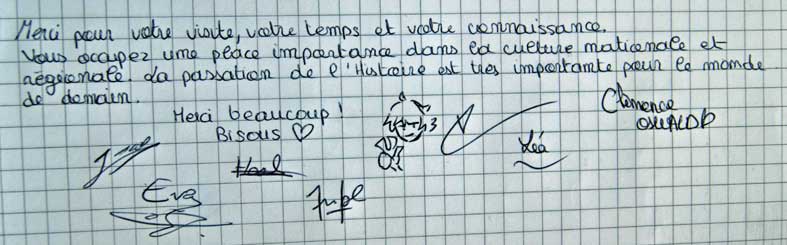 Merci pour votre visite, votre temps et votre connaissance.
Vous occupez une place importance dans la culture nationale et
régionale. La passation de l'Histoire est très importante pour le monde
de demain.
Merci beaucoup !
Bisous ♡
Clemence
OSWALD
Léa
Eva